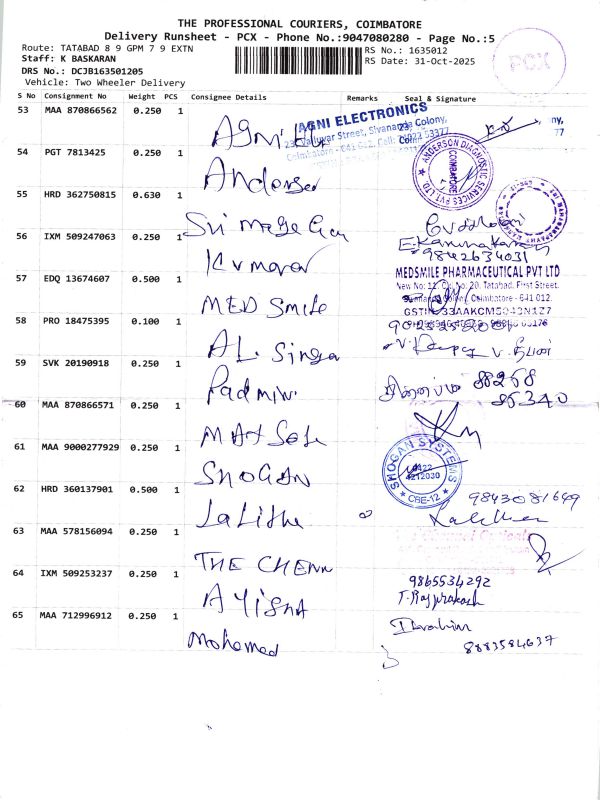 THE PROFESSIONAL COURIERS, COIMBATORE
Delivery Runsheet - PCX - Phone No.:9047080280 - Page No.:5
Route: TATABAD 8 9 GPM 7 9 EXTN
RS No.: 1635012
Staff: K BASKARAN
RS Date: 31-Oct-2025
DRS No.: DCJB163501205
Vehicle: Two Wheeler Delivery
PCX
S No Consignment No Weight PCS Consignee Details Remarks Seal & Signature
53 MAA 870866562 0.250 1
AGNI ELECTRONICS
Street, Sivananda Colony,
54 PGT 7813425 0.250 1 Anderson
ANDERSON DIAGNOSTIC SERVICES PVT. LTD
COIMBATORE
55 HRD 362750815 0.630 1
56 IXM 509247063 0.250 1 Kumaran
E.Karunakaran
9842634031
57 EDQ 13674607 0.500 1 MED Smile
MEDSMILE PHARMACEUTICAL PVT LTD
New No: 11, Old No: 20, Tatabad, First Street,
Sivananda Colony, Coimbatore - 641 012.
58 PRO 18475395 0.100 1 AL. Singa
59 SVK 20190918 0.250 1 Padmin
88268
85340
60 MAA 870866571 0.250 1
61 MAA 9000277929 0.250 1 SHOGAN
SHOGAN SYSTEMS
0422
4212030
CBE-12
62 HRD 360137901 0.500 1 Lalitha
9843081649
63 MAA 578156094 0.250 1 THE CHENN
64 IXM 509253237 0.250 1 AYISHA
9865534292
T. Rajprakash
65 MAA 712996912 0.250 1 Mohamed
Ibrahim
8883584637